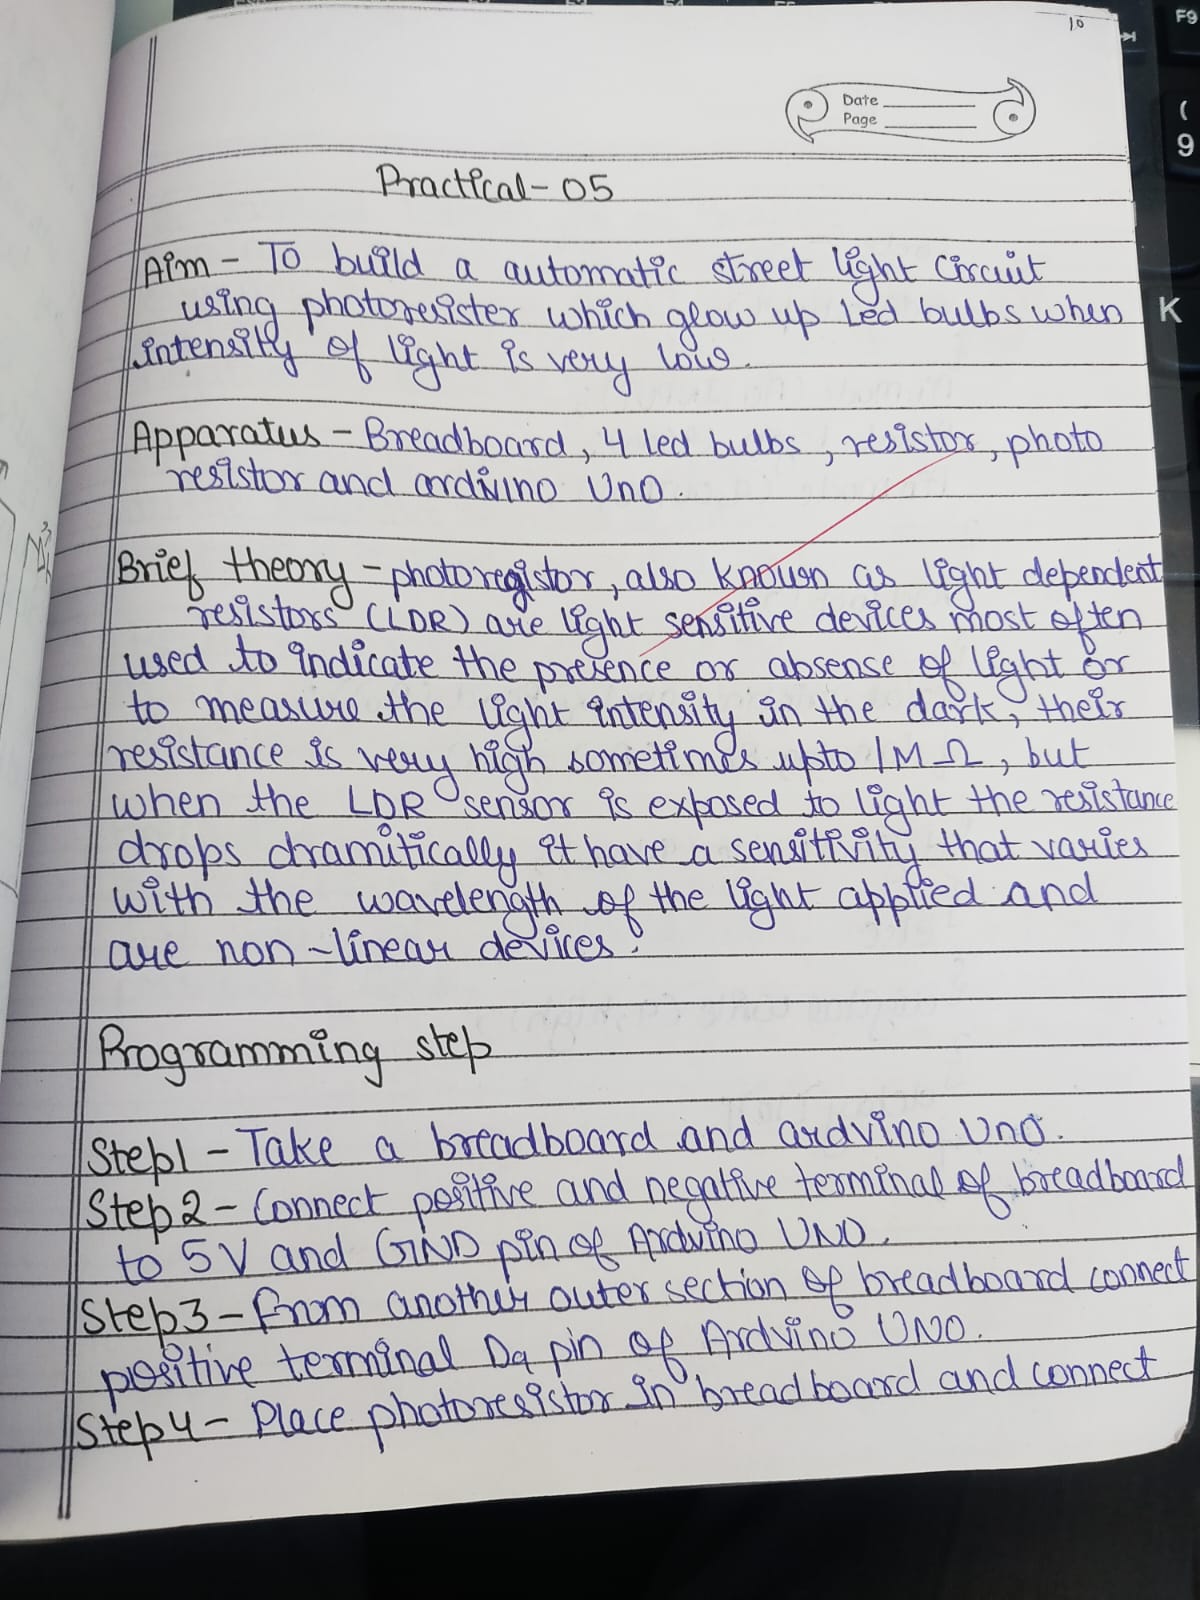 10
Date
Page
Practical-05
Aim - To build a automatic street light circuit
using photoresister which glow up Led bulbs when
intensity of light is very low.
Apparatus - Breadboard, 4 led bulbs, resistor, photo
resistor and arduino Uno.
Brief theory - photoregistor, also known as light dependent
resistors (LDR) are light sensitive devices most often
used to indicate the presence or absense of light or
to measure the light intensity in the dark, their
resistance is very high sometimes upto 1MΩ, but
when the LDR sensor is exposed to light the resistance
drops dramitically it have a sensitivity that varies
with the wavelength of the light applied and
are non-linear devices.
Programming step
Step1 - Take a breadboard and ardvino Uno.
Step2 - Connect positive and negative terminal of breadboard
to 5V and GND pin of Arduino UNO.
Step3 - From another outer section of breadboard connect
positive terminal Da pin of Arduino UNO.
Step4 - Place photoresistor in breadboard and connect
F9
(
9
K